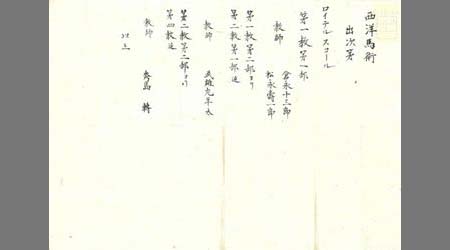 西洋馬術
出次第
ロイテルスコール
第一教第一部
倉永十三郎
教師
松永壽一郎
第一教第二部ヨリ
第二教第一部迄
教師
武雄元年太
第二教第二部ヨリ
第四教迄
教師
以上